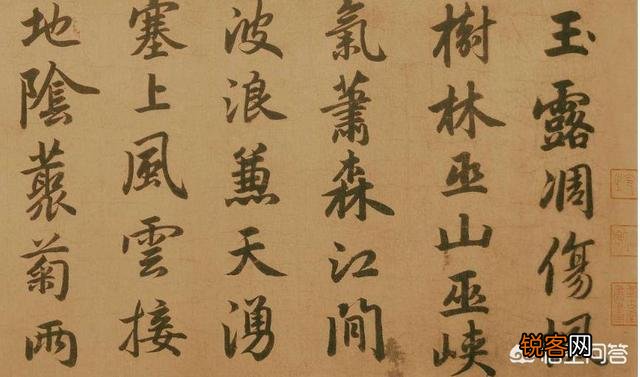 玉露凋傷楓
樹林巫山巫峽
氣蕭森江間
波浪兼天湧
塞上風雲接
地陰叢菊兩
锐客网
悟空问答